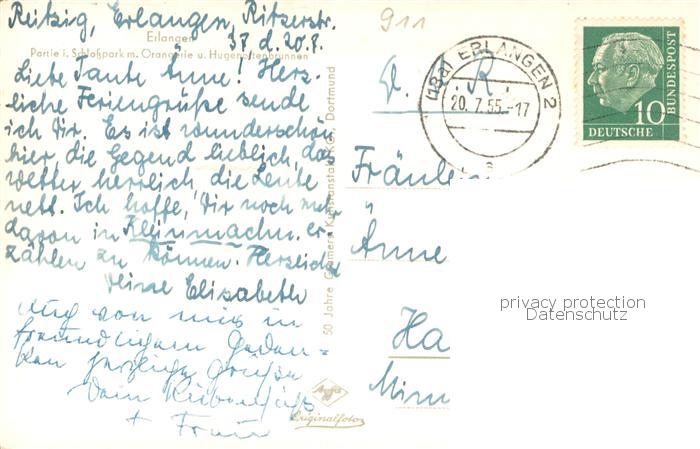 Erlangen, Ritzerstr.
37 d. 20. 7.
Erlangen
Partie i. Schloßpark m. Orangerie u. Hugenottenbrunnen
Liebe Tante Änne! Herz-
liche Feriengrüße sende
ich Dir. Es ist wunderschön
hier, die Gegend lieblich, das
Wetter herrlich, die Leute
nett. Ich hoffe, Dir noch mehr
davon in Kleinmachn. er-
zählen zu können. Herzlichst
Deine Elisabeth
Auch von mir in
freundlichem Geden-
ken herzliche Grüße
Dein
+ Frau
50 Jahre Cramers Kunstanstalt KG., Dortmund
Agfa
Originalfoto
911
(13a) ERLANGEN 2
20. 7. 55.-17
a
10
DEUTSCHE
BUNDESPOST
D. R.
Fräule
Änne
Ha
privacy protection
Datenschutz